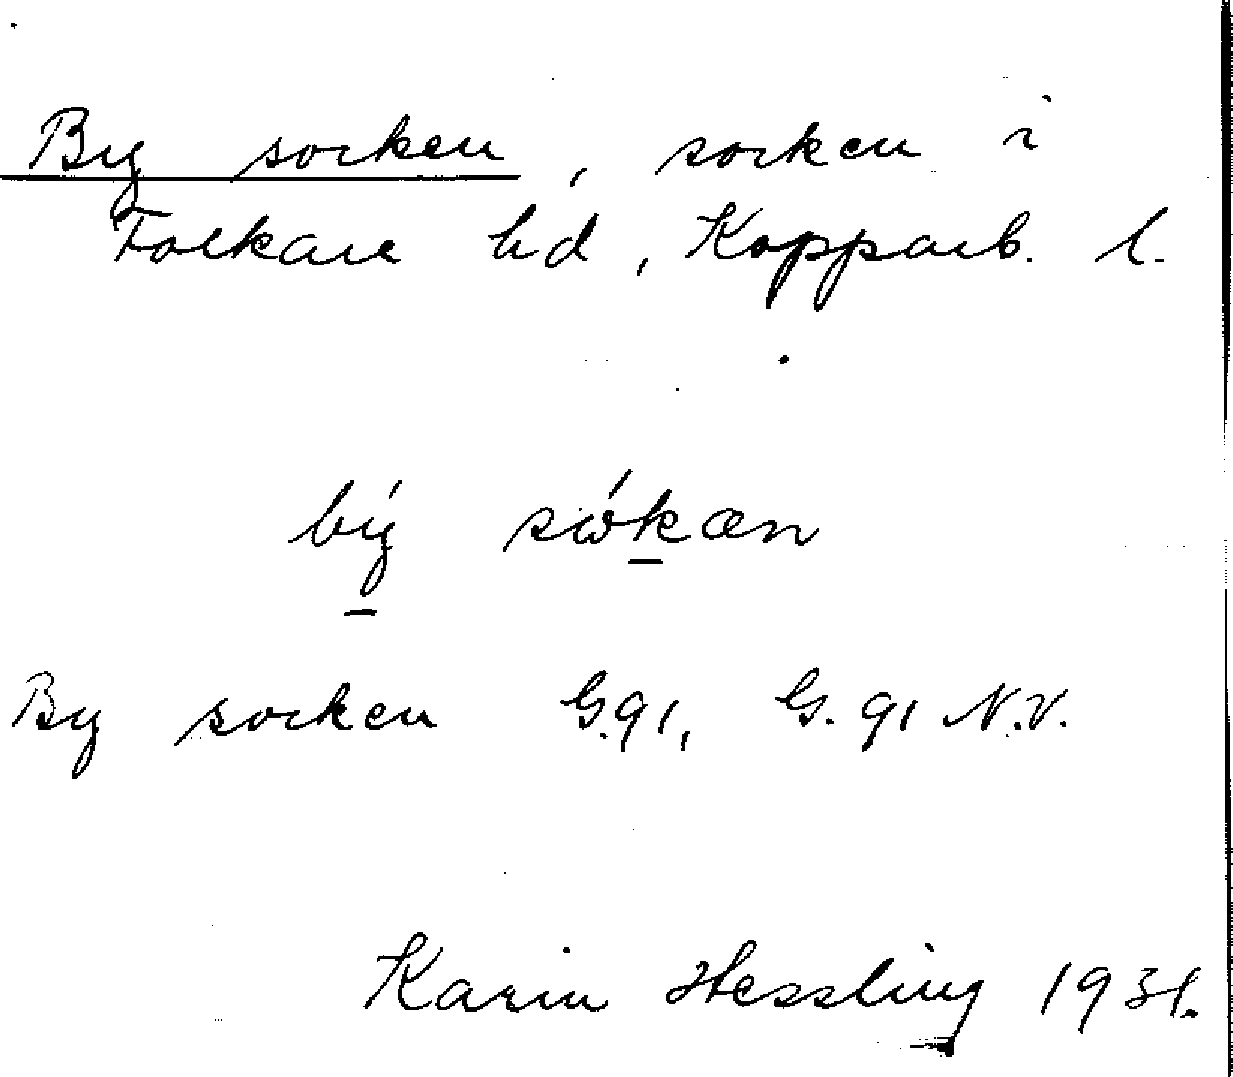 By socken, socken i
Folkare hd, Kopparb. l.
bý sókæn
By socken G.91, G. 91 N.V.
Karin Hessling 1931.